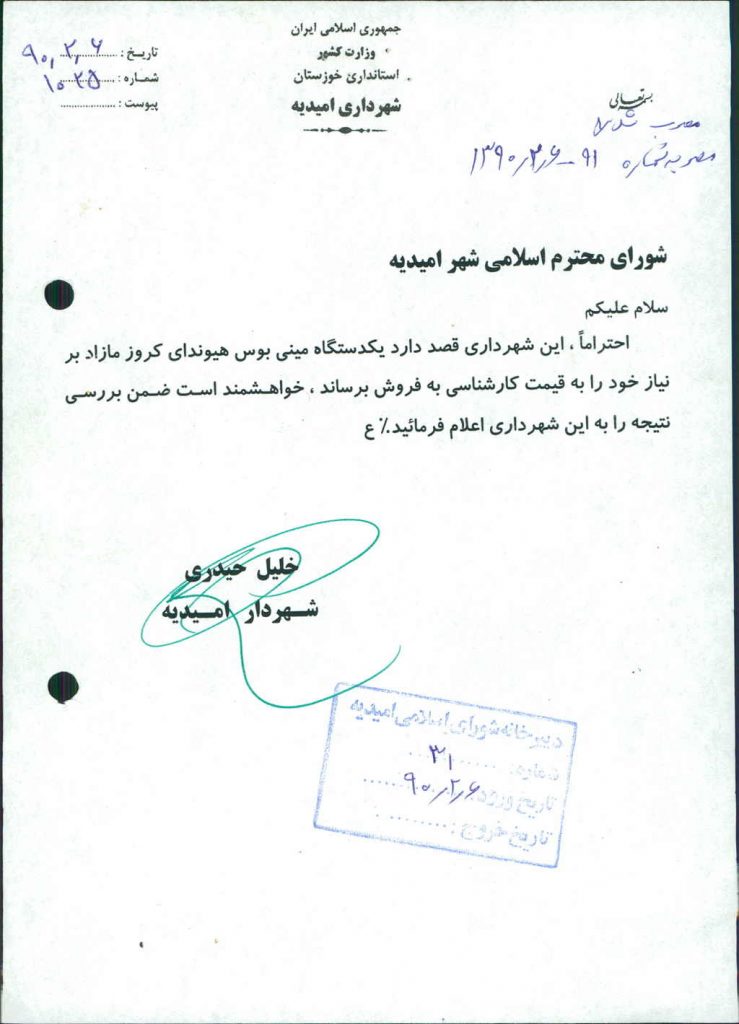 جمهوری اسلامی ایران
وزارت کشور
استانداری خوزستان
شهرداری امیدیه
تاریخ : ۹۰٫۲٫۶
شماره : ۱۰۲۵
پیوست :
بسمه تعالی
مصوب شد
مصوبه شماره ۹۱-۱۳۹۰٫۲٫۶
شورای محترم اسلامی شهر امیدیه
سلام علیکم
احتراماً ، این شهرداری قصد دارد یکدستگاه مینی بوس هیوندای کروز مازاد بر
نیاز خود را به قیمت کارشناسی به فروش برساند ، خواهشمند است ضمن بررسی
نتیجه را به این شهرداری اعلام فرمائید.٪ ع
خلیل حیدری
شهردار امیدیه
دبیرخانه شورای اسلامی امیدیه
شماره: ۳۱
تاریخ ورود: ۹۰٫۲٫۶
تاریخ خروج: